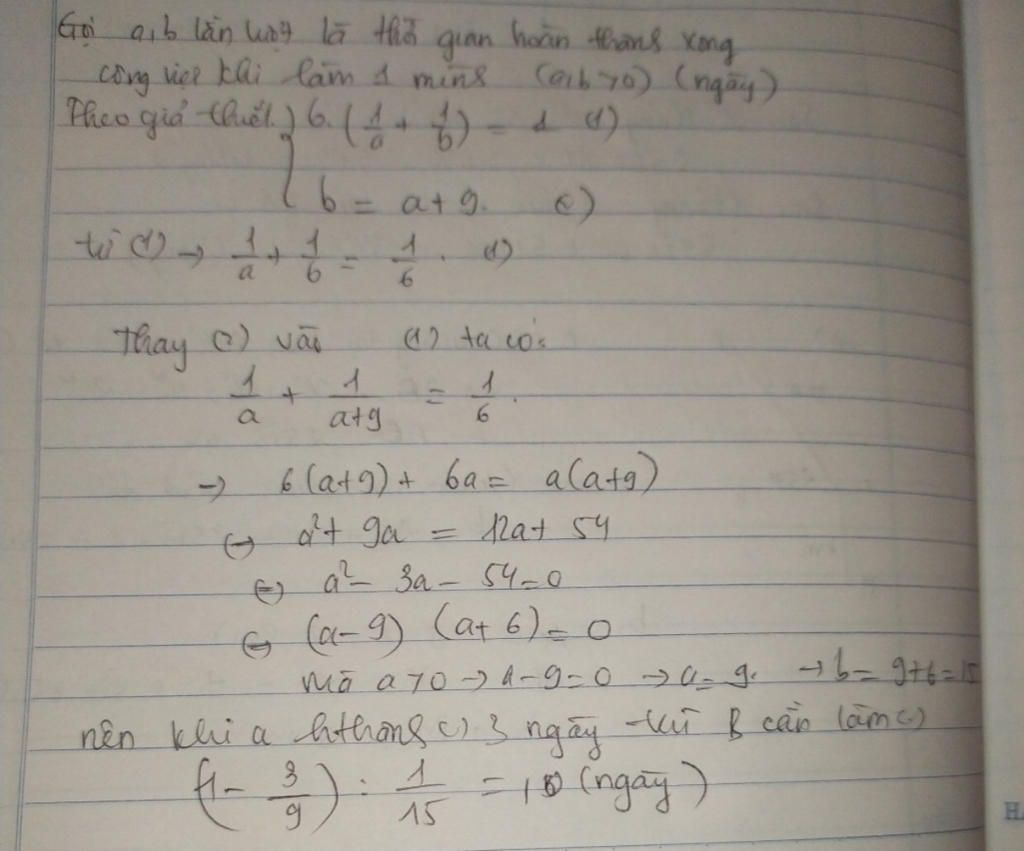 Gọi a,b lần lượt là thời gian hoàn thành xong
công việc khi làm 1 mình (a,b >0) (ngày)
Theo giả thiết. } 6.(1/a + 1/b) = 1 (1)
{ b = a + 9. (2)
từ (1) → 1/a + 1/b = 1/6 . (1)
Thay (2) vào (1) ta có:
1/a + 1/(a+9) = 1/6 .
→ 6(a+9) + 6a = a(a+9)
⇔ a² + 9a = 12a + 54
⇔ a² - 3a - 54 = 0
⇔ (a-9) (a+6) = 0
mà a >0 → a-9=0 → a=9. → b= 9+6=15
nên khi a () 3 ngày thì B cần làm ()
(1 - 3/9) : 1/15 = 10 (ngày)